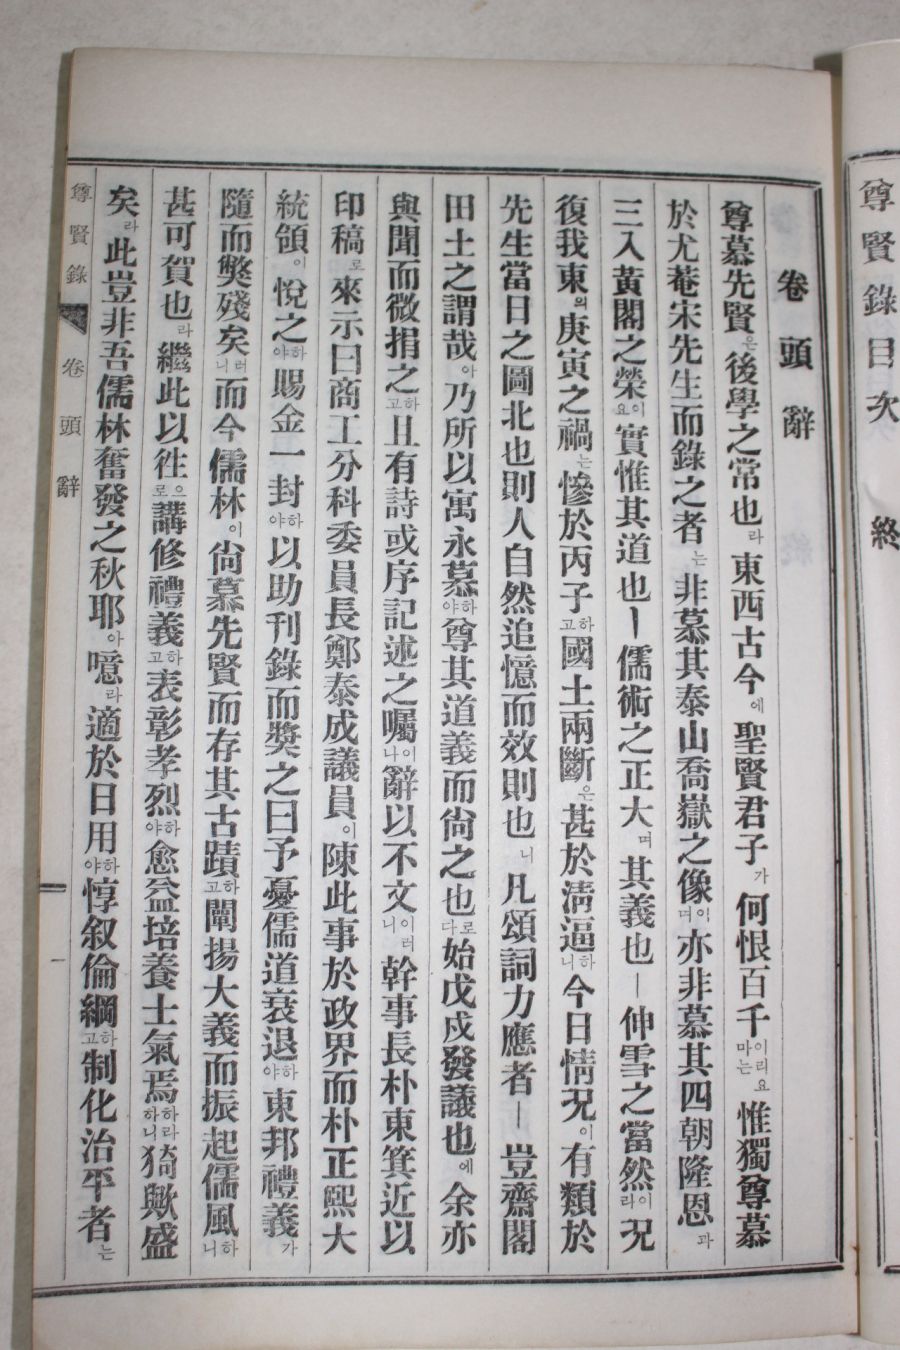 尊賢錄目次 終
卷頭辭
尊慕先賢은後學之常也라東西古今에聖賢君子가何恨百千이리요마는惟獨尊慕
於尤菴宋先生而錄之者는非慕其泰山喬嶽之像이며亦非慕其四朝隆恩과
三入黃閣之榮이요實惟其道也ㅣ儒術之正大며其義也ㅣ伸雪之當然이라況
復我東의庚寅之禍는慘於丙子하고國土兩斷은甚於淸逼하니今日情況이有類於
先生當日之圖北也則人自然追憶而效則也니凡頌詞力應者ㅣ豈齋閣
田土之謂哉아乃所以寓永慕하야尊其道義而尙之也로다始戊戌發議也에余亦
與聞而微捐之하고且有詩或序記述之囑이나辭以不文이러니幹事長朴東箕近以
印稿로來示曰商工分科委員長鄭泰成議員이陳此事於政界而朴正熙大
統領이悅之하야賜金一封하야以助刊錄而奬之曰予憂儒道衰退하야東邦禮義가
隨而獘殘矣러니而今儒林이尙慕先賢而存其古蹟하고闡揚大義而振起儒風하니
甚可賀也라繼此以往으로講修禮義하고表彰孝烈하야愈益培養士氣焉하라하니猗歟盛
矣라此豈非吾儒林奮發之秋耶아噫라適於日用하야惇叙倫綱하고制化治平者는
尊賢錄 卷頭辭 一